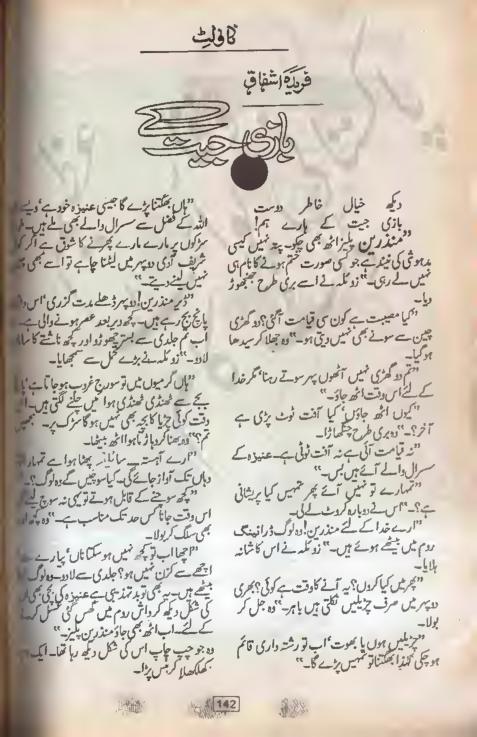 ناولٹ
فریدہ اشفاق
بازی جیت کے
دیکھ خیال خاطر دوست
بازی جیت کے ہارے ہم!
”منذرین پلیز اٹھ بھی چکو۔ پتہ نہیں کیسی
مدہوشی کی نیند ہے جو کسی صورت ختم ہونے کا نام ہی
نہیں لے رہی۔“ زوئلہ نے اسے بری طرح جھنجھوڑ
دیا۔
”کیا مصیبت ہے کون سی قیامت آگئی؟ دو گھڑی
چین سے سونے بھی نہیں دیتی ہو۔“ وہ جھلا کر سیدھا
ہو گیا۔
”تم دو گھڑی نہیں آٹھوں پہر سوتے رہنا، مگر خدا
کے لئے اس وقت اٹھ جاؤ۔“
”کیوں اٹھ جاؤں، کیا آفت ٹوٹ پڑی ہے
آخر؟۔“ وہ بری طرح چنگھاڑا۔
”نہ قیامت آئی ہے نہ آفت ٹوٹی ہے۔ عنیزہ کے
سسرال والے آئے ہیں بس۔“
”تمہارے تو نہیں آئے پھر تمہیں کیا پریشانی
ہے؟۔“ اس نے دوبارہ کروٹ لے لی۔
”ارے خدا کے لئے منذرین! وہ لوگ ڈرائنگ
روم میں بیٹھے ہوئے ہیں۔“ زوئلہ نے اس کا شانہ
ہلایا۔
”پھر میں کیا کروں؟ یہ آنے کا وقت ہے کوئی؟ بھری
دوپہر میں صرف چڑیلیں نکلتی ہیں باہر۔“ وہ جل کر
بولا۔
”چڑیلیں ہوں یا بھوت، اب تو رشتہ داری قائم
ہو چکی لہٰذا بھگتنا تو تمہیں پڑے گا۔“
”ہاں بھگتنا پڑے گا جیسی عنیزہ خود ہے، ویسے
اللہ کے فضل سے سسرال والے بھی ملے ہیں۔
سڑکوں پر مارے مارے پھرنے کا شوق ہے اگر کوئی
شریف آدمی دوپہر میں لیٹنا چاہے تو اسے بھی
نہیں لینے دیتے۔“
”ڈیر منذرین! دوپہر ڈھلے مدت گزری، اس
پانچ بج رہے ہیں۔ کچھ دیر بعد عصر ہونے والی ہے۔
اب تم جلدی سے بستر چھوڑو اور کچھ ناشتے کا سامان
لا دو۔“ زوئلہ نے بڑے تحمل سے سمجھایا۔
”ہاں گرمیوں میں تو سورج غروب ہو جاتا ہے،
بجے سے ٹھنڈی ٹھنڈی ہوا میں چلنے لگتی ہیں۔
وقت کوئی چڑیا کا بچہ بھی نہیں ہوگا سڑک پر۔ سمجھیں
تم؟“ وہ بھنا کر دہاڑتا ہوا اٹھ بیٹھا۔
”ارے آہستہ۔ سائیلنسر پھٹا ہوا ہے تمہارا
وہاں تک آواز جائے گی۔ کیا سوچیں گے وہ لوگ؟۔“
”کچھ سوچنے کے قابل ہوتے تو یہی نہ سوچ لیتے
اس وقت جانا کس حد تک مناسب ہے۔“ وہ کچھ اور
بھی سلگ کر بولا۔
”اچھا اب تو کچھ نہیں ہو سکتا ناں، پیارے سے
اچھے سے کزن نہیں ہو؟ جلدی سے لا دو۔ وہ لوگ
بیٹھے ہیں۔ یہ بھی تو بدتمیزی ہے عنیزہ کی
کی شکل دیکھ کر واش روم میں گھس گئی غسل کرنے
کے لئے۔ اب اٹھ بھی جاؤ منذرین پلیز۔“
وہ جو چپ چاپ اس کی شکل دیکھ رہا تھا۔ ایک دم
کھلکھلا کر ہنس پڑا۔
142